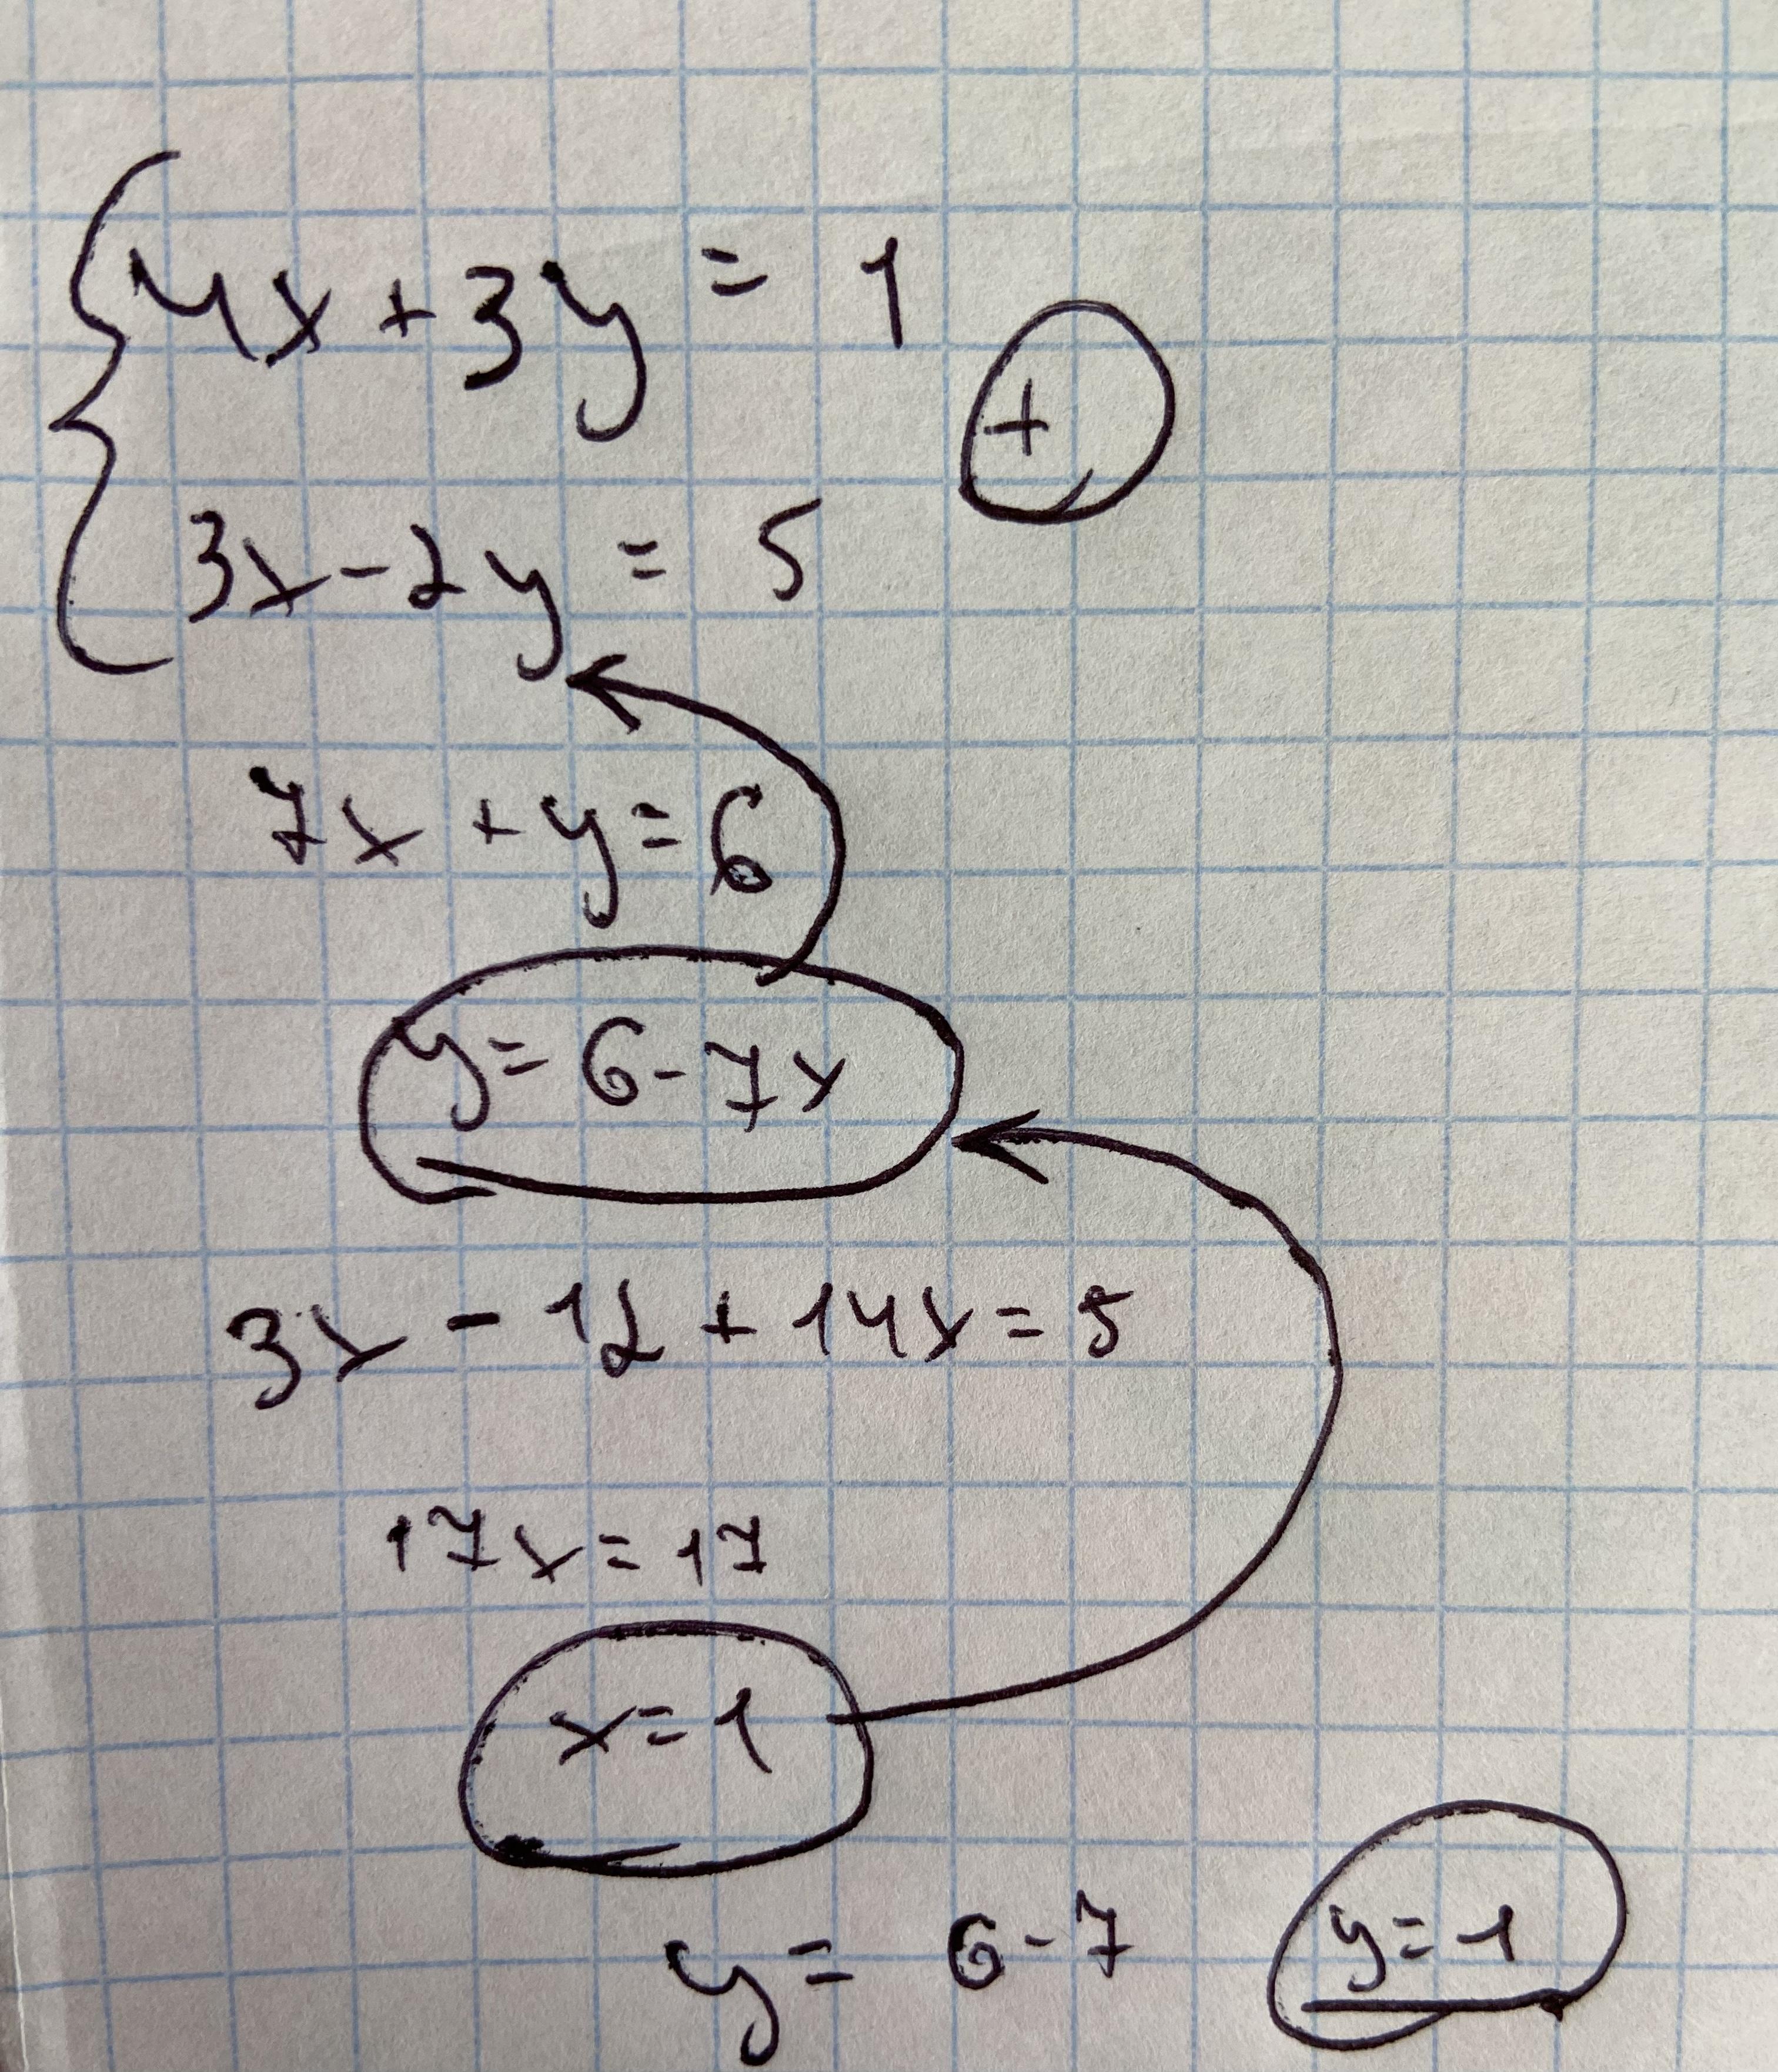 4x+3y = 1
+
3x-2y = 5
7x+y=6
y=6-7x
3x-12+14x=5
17x=17
x=1
y= 6-7 y=-1